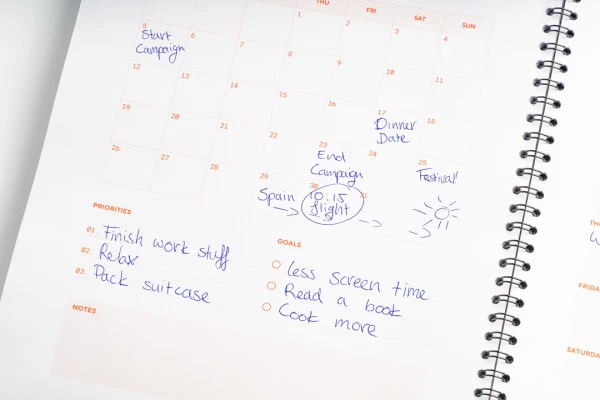 THU FRI SAT SUN
1 2 3 4
5 6 7 8 9 10 11
Start
Campaign
12 13 14 15 16 17 18
Dinner
Date
19 20 21 22 23 24 25
End
Campaign
Festival!
26 27 28 29 30 31
Spain 10:15
flight
PRIORITIES
01. Finish work stuff
02. Relax
03. Pack suitcase
GOALS
less screen time
Read a book
Cook more
NOTES
FRIDA
SATURDA